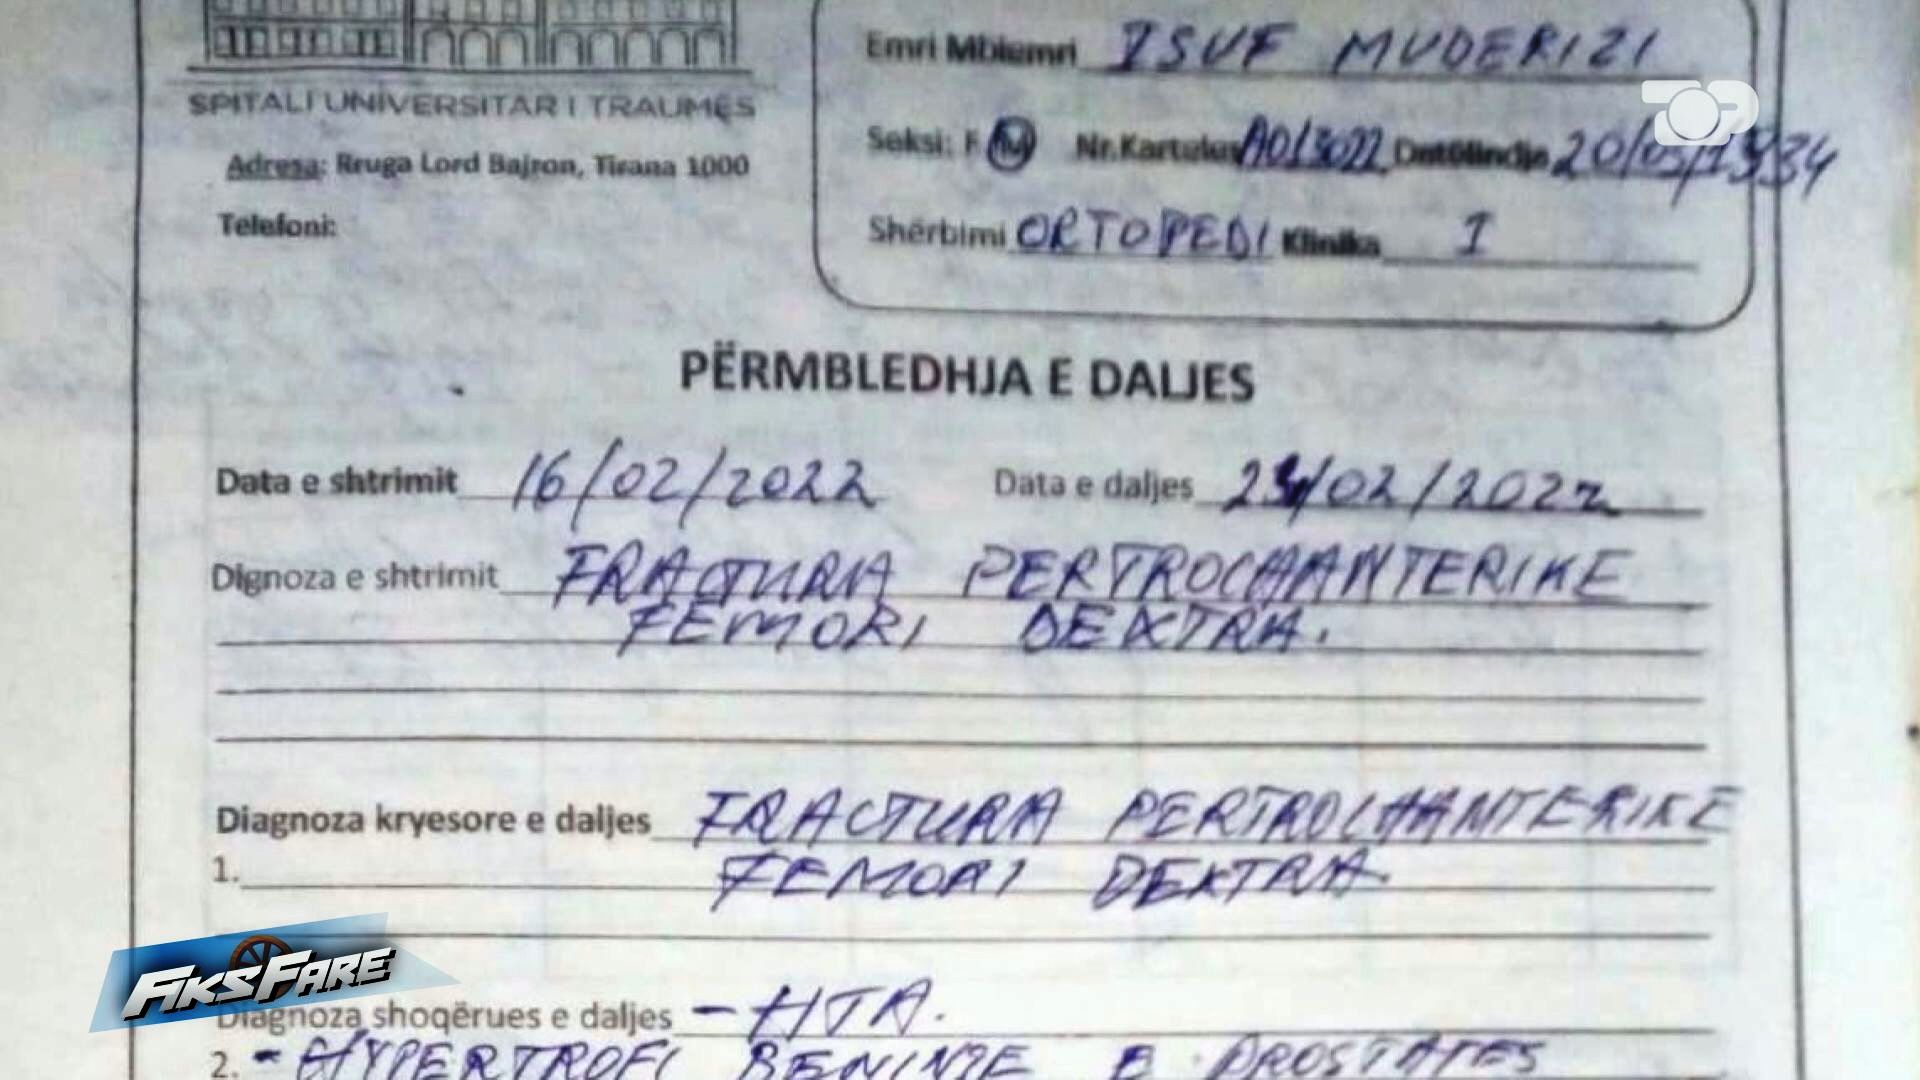 Emri Mbiemri ISUF MUDERIZI
TOP
SPITALI UNIVERSITAR I TRAUMËS
Seksi: F M Nr.Kartelës A013022 Datëlindje 20/05/1934
Adresa: Rruga Lord Bajron, Tirana 1000
Telefoni:
Shërbimi ORTOPEDI Klinika 1
PËRMBLEDHJA E DALJES
Data e shtrimit 16/02/2022 Data e daljes /02/2022
Dignoza e shtrimit FRACTURA PERTROCHANTERIKE
FEMORI DEXTRA.
Diagnoza kryesore e daljes FRACTURA PERTROCHANTERIKE
1. FEMORI DEXTRA.
FIKS FARE
Diagnoza shoqërues e daljes - HTA.
2. - HYPERTROFI BENINJE E PROSTATES